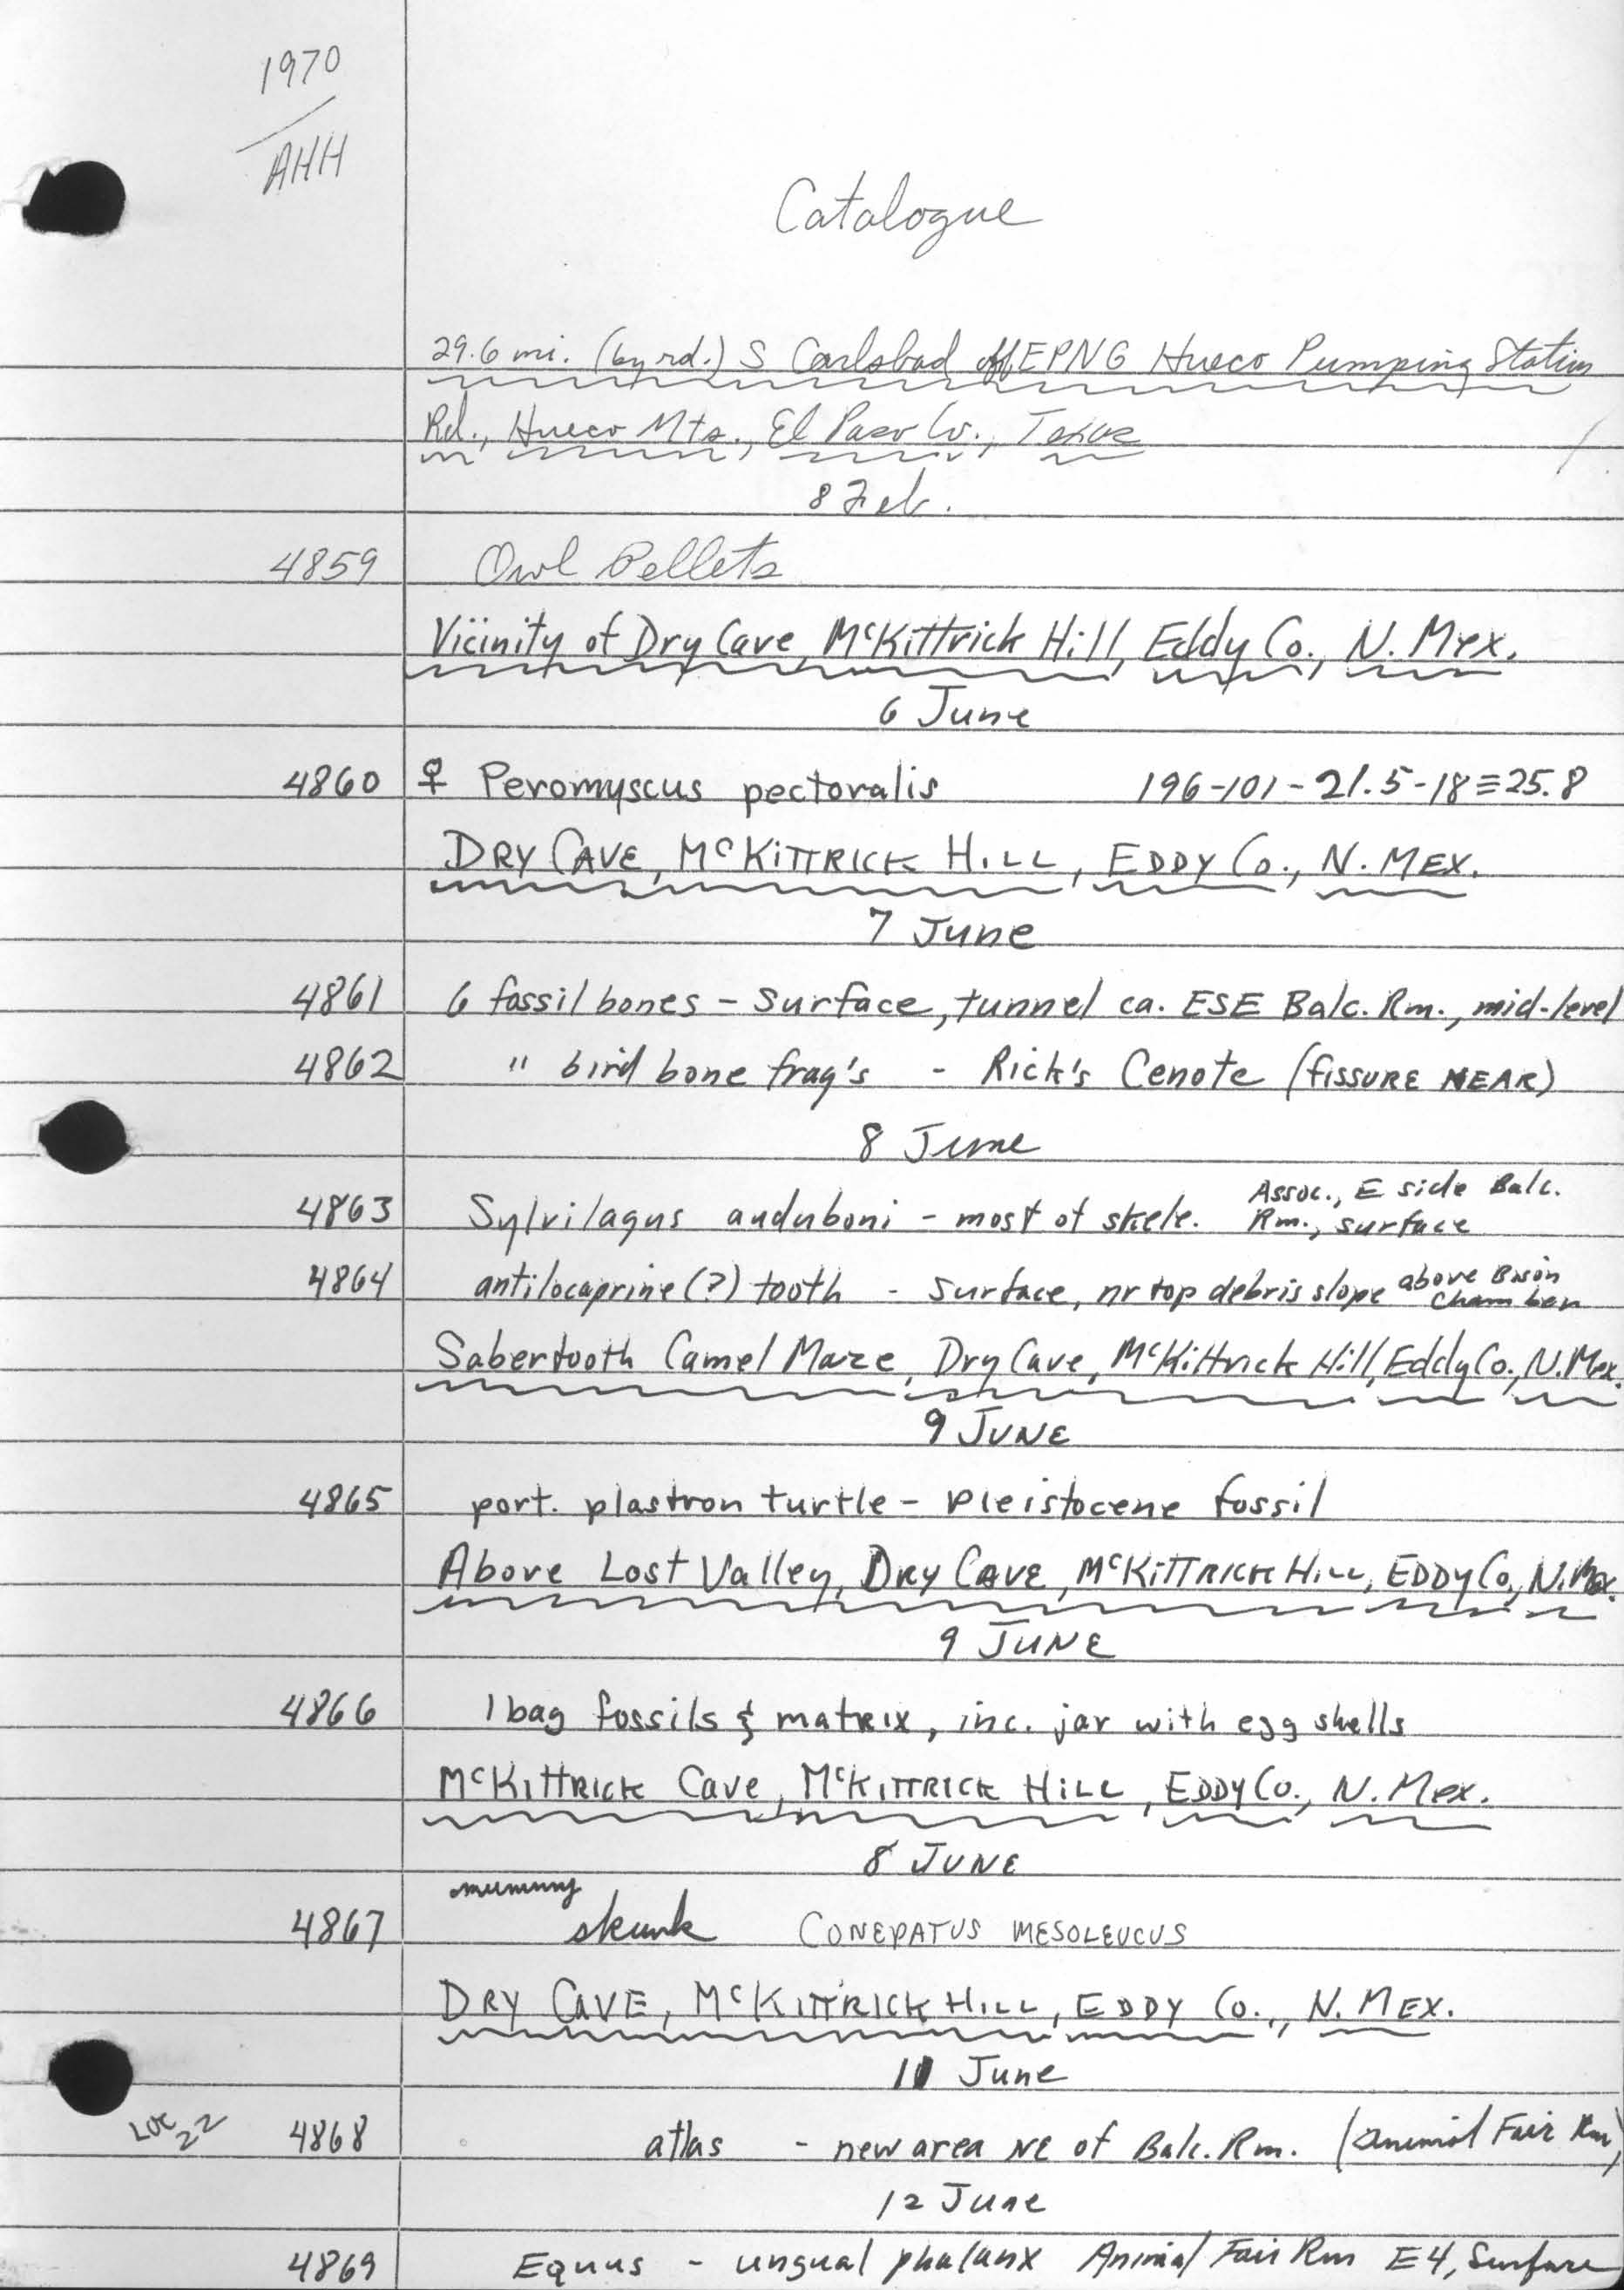 1970
AHH
Catalogue
29.6 mi. (by rd.) S Carlsbad off EPNG Hueco Pumping Station
Rd., Hueco Mts., El Paso Co., Texas
8 Feb.
4859 Owl Pellets
Vicinity of Dry Cave, McKittrick Hill, Eddy Co., N. Mex.
6 June
4860 ♀ Peromyscus pectoralis 196-101-21.5-18≡25.8
DRY CAVE, McKITTRICK HILL, EDDY Co., N. MEX.
7 June
4861 6 fossil bones - Surface, tunnel ca. ESE Balc. Rm., mid-level
4862 " bird bone frag's - Rick's Cenote (FISSURE NEAR)
8 June
4863 Sylvilagus auduboni - most of skele. Assoc., E side Balc.
Rm., surface
4864 antilocaprine(?) tooth - Surface, nr top debris slope above Bison
Chamber
Sabertooth Camel Maze, Dry Cave, McKittrick Hill, Eddy Co., N. Mex.
9 JUNE
4865 port. plastron turtle - Pleistocene fossil
Above Lost Valley, DRY CAVE, McKITTRICK HILL, EDDY Co., N. Mex.
9 JUNE
4866 1 bag fossils & matrix, inc. jar with egg shells
McKITTRICK Cave, McKITTRICK HILL, EDDY Co., N. Mex.
8 JUNE
mummy
4867 skunk CONEPATUS MESOLEUCUS
DRY CAVE, McKITTRICK HILL, EDDY Co., N. MEX.
11 June
LOC 22 4868 atlas - new area NE of Balc. Rm. (Animal Fair Rm)
12 June
4869 Equus - ungual phalanx Animal Fair Rm E4, Surface